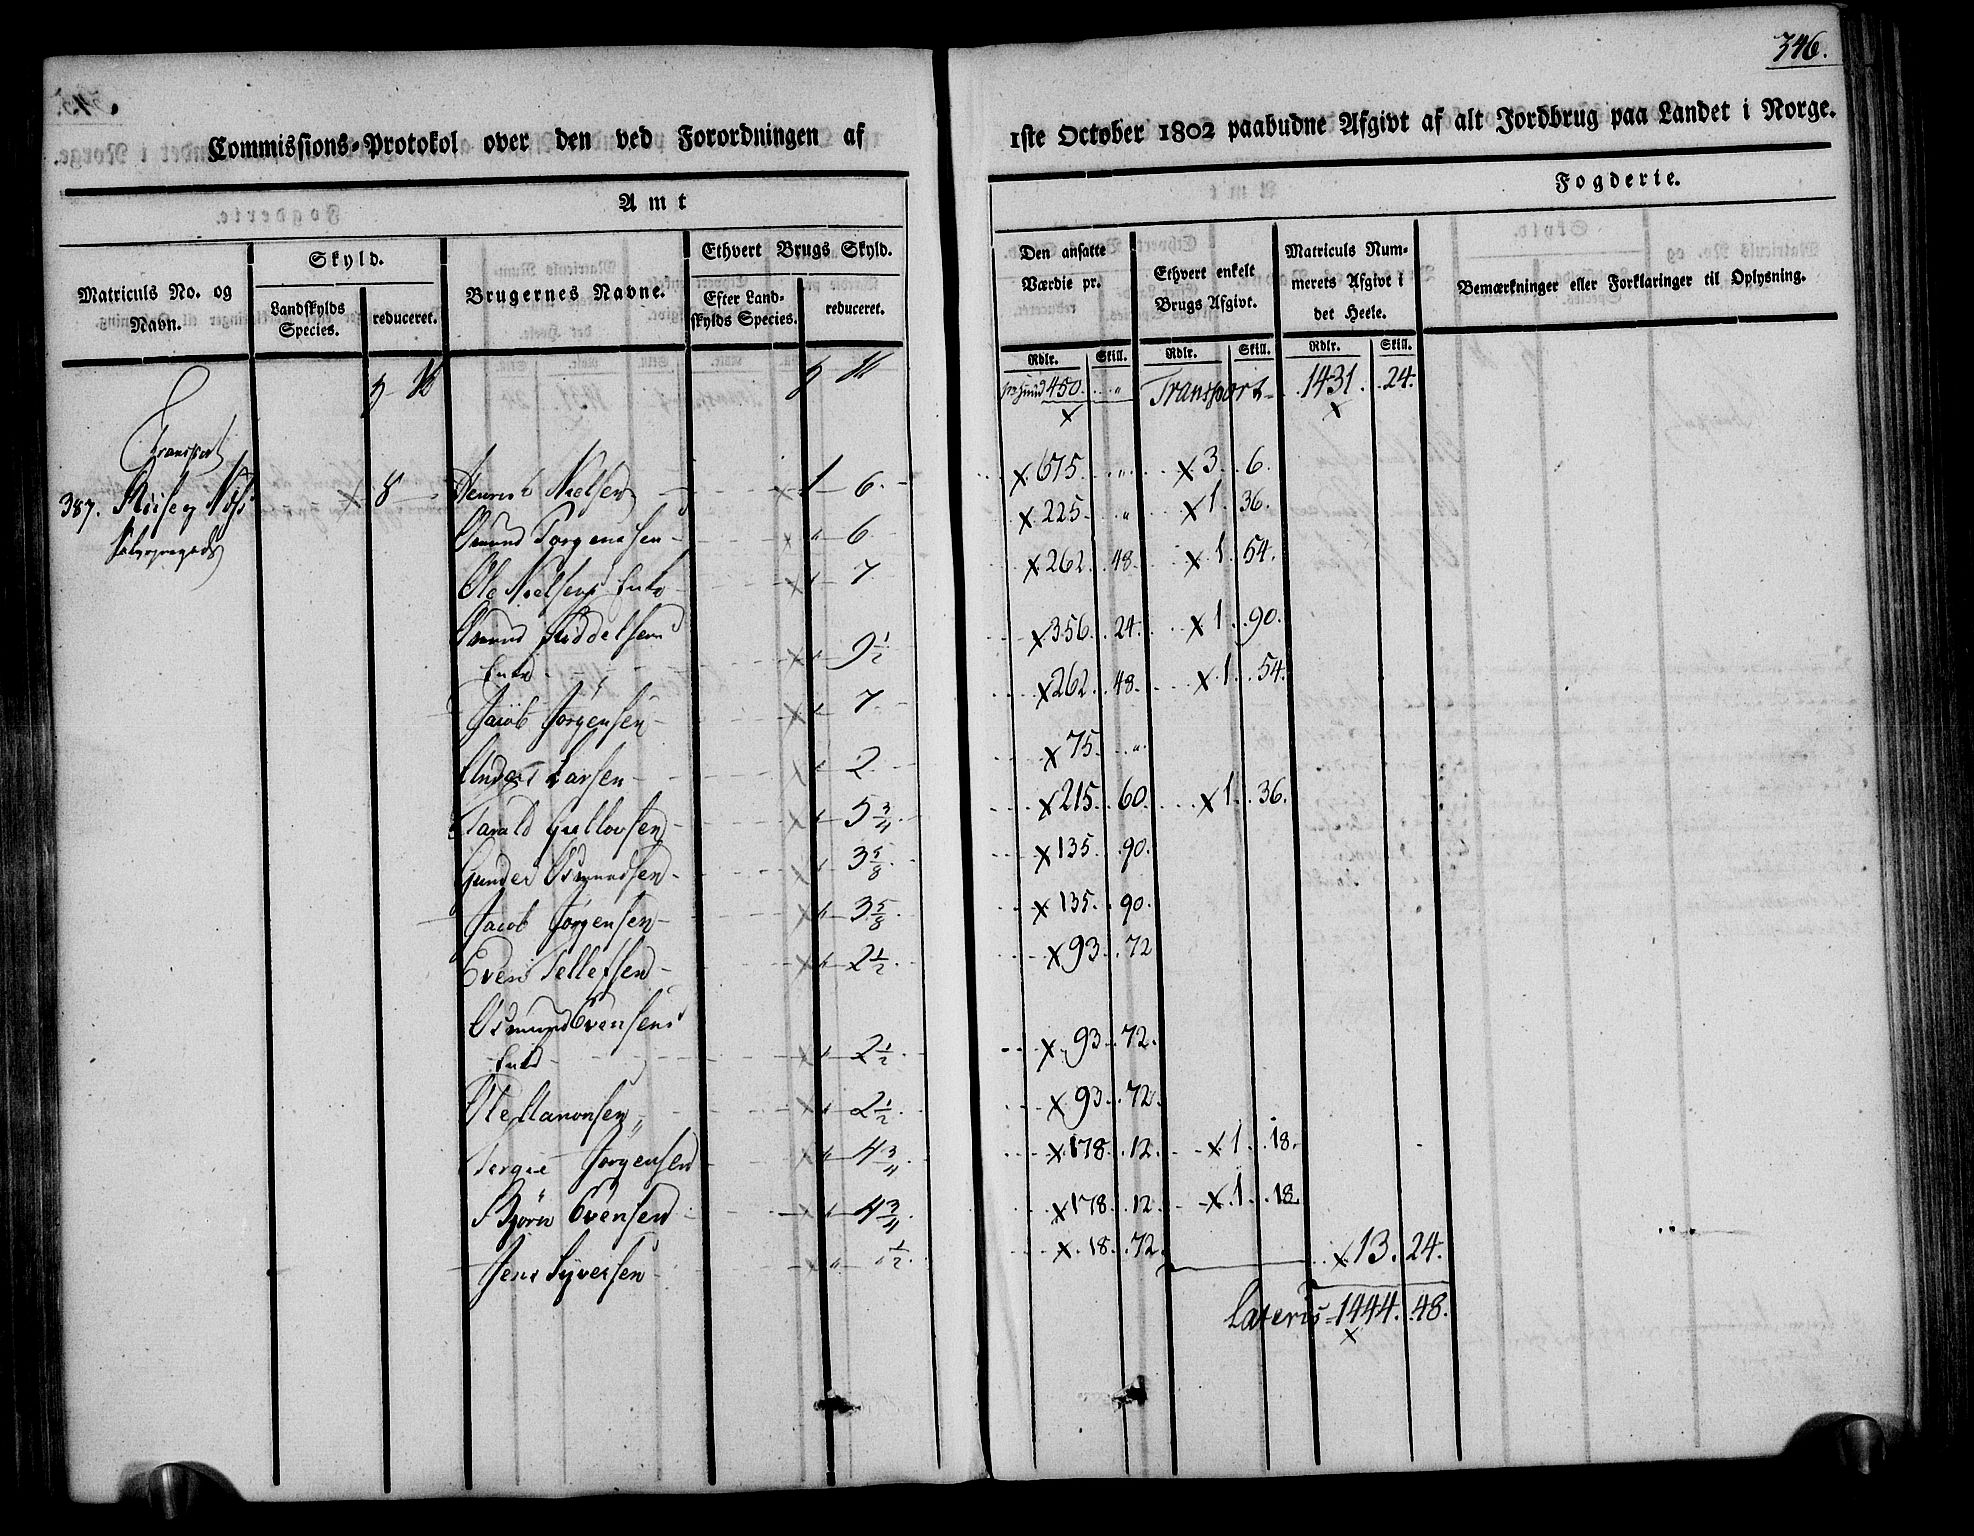 346.
Commissions-Protokol over den ved Forordningen af 1ste October 1802 paabudne Afgivt af alt Jordbrug paa Landet i Norge.
Amt Fogderie.
Matriculs No. og Navn.
Skyld.
Landskylds Species.
reduceret.
Brugernes Navne.
Ethvert Brugs Skyld.
Efter Landskylds Species.
reduceret.
Den ansatte Værdie pr.
Ethvert enkelt Brugs Afgivt.
Matriculs Nummerets Afgivt i det Heele.
Bemærkninger eller Forklaringer til Oplysning.
Rdlr. Skill. Rdlr. Skill. Rdlr. Skill.
450. " Transport 1431. 24.
Transport
387. 8 Nielsen 1 6. 675. " 3. 6.
Osmund 6 225. " 1. 36.
Ole Nielsens Enke 7 262. 48. 1. 54.
Osmund
Enke 9 1/2 356. 24. 1. 90.
Jacob Jørgensen 7 262. 48. 1. 54.
Anders Larsen 2 75. "
Tarald Gullovsen 5 3/4 215. 60. 1. 36.
Gunder Osmundsen 3 5/8 135. 90.
Jacob Jørgensen 3 5/8 135. 90.
Even Tellefsen 2 1/2 93. 72
Osmund Evensens
Enke 2 1/2 93. 72.
Ole Aanonsen 2 1/2 93. 72.
Tergie Jørgensen 4 3/4 178. 12. 1. 18.
Bjørn Evensen 4 3/4 178. 12. 1. 18.
Jens Syversen 1/2 18. 72. 13. 24.
Lateris 1444. 48.